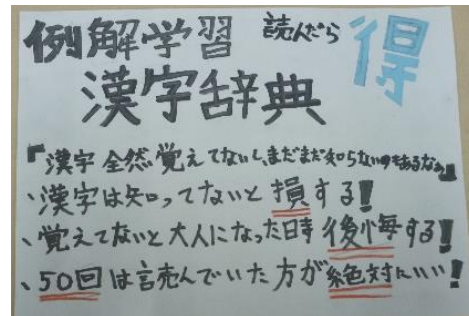 例解学習 読んだら 得
漢字辞典
『漢字全然覚えてないし、まだまだ知らないのもあるなぁ』
、漢字は知ってないと損する!
、覚えてないと大人になった時後悔する!
、50回は読んでいた方が絶対にいい!